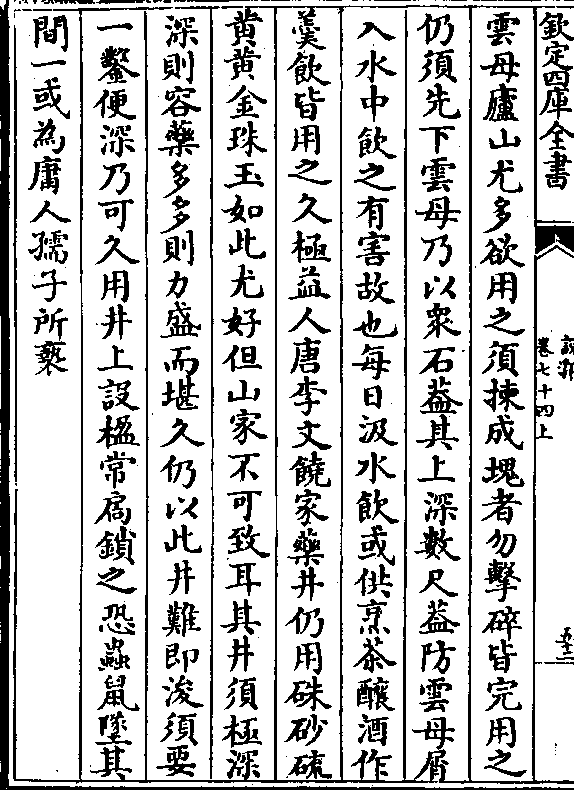 欽定四庫全書
說郛
卷七十四上
五十二
雲母廬山尤多欲用之須揀成塊者勿擊碎皆完用之
仍須先下雲母乃以衆石葢其上深數尺葢防雲母屑
入水中飲之有害故也每日汲水飲或供烹茶釀酒作
羮飲皆用之久極益人唐李文饒家藥井仍用硃砂硫
黄黄金珠玉如此尤好但山家不可致耳其井須極深
深則容藥多多則力盛而堪久仍以此井難即浚須要
一鑿便深乃可久用井上設楹常扃鎖之恐蟲鼠墜其
間一或為庸人孺子所䙝